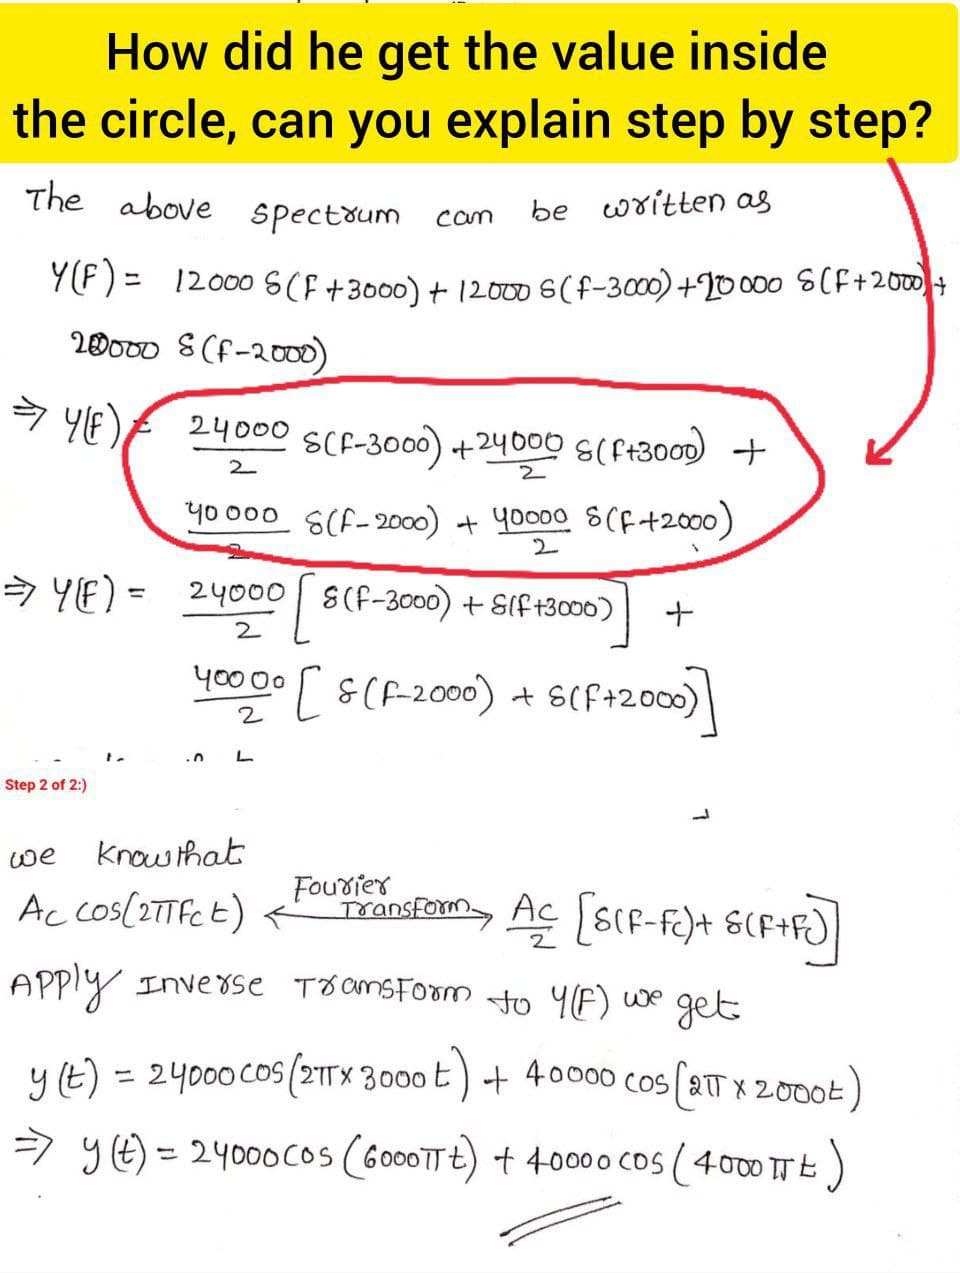 How did he get the value inside
the circle, can you explain step by step?
The above spectrum can be written as
Y(F) = 12000 δ(F+3000) + 12000 δ(f-3000) + 20000 δ(F+2000) +
20000 δ(f-2000)
⇒ Y(F) = 24000/2 δ(f-3000) + 24000/2 δ(f+3000) +
40000/2 δ(f-2000) + 40000/2 δ(F+2000)
⇒ Y(F) = 24000/2 [ δ(f-3000) + δ(f+3000) ] +
40000/2 [ δ(f-2000) + δ(f+2000) ]
Step 2 of 2:)
we know that
Ac cos(2πFct) ⟷ Fourier Transform Ac/2 [δ(F-Fc) + δ(F+Fc)]
Apply Inverse Transform to Y(F) we get
y(t) = 24000 cos(2π x 3000t) + 40000 cos(2π x 2000t)
⇒ y(t) = 24000 cos(6000πt) + 40000 cos(4000πt)